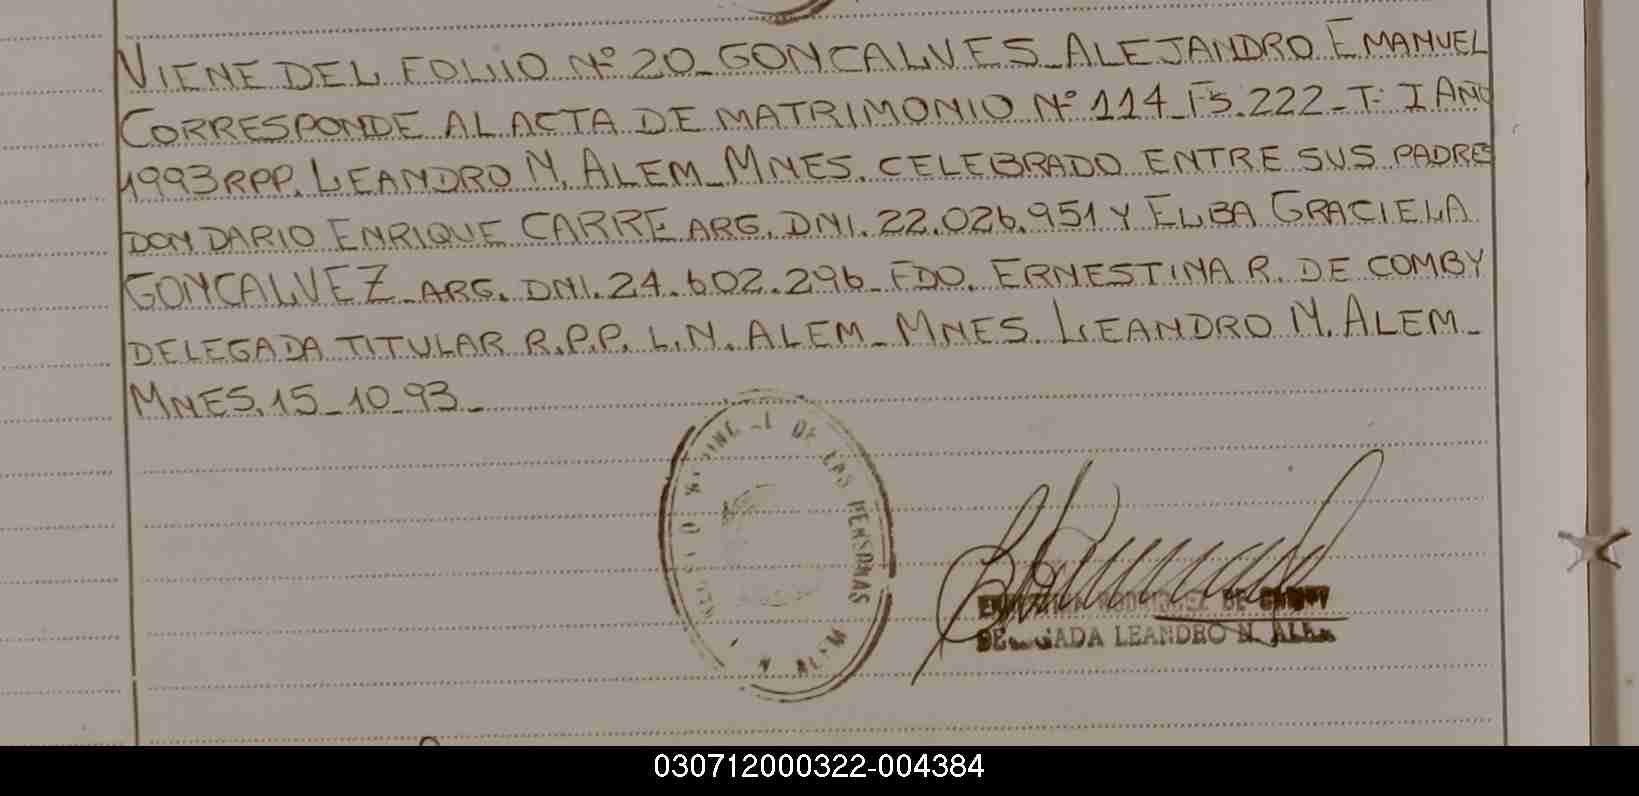 VIENE DEL FOLIO Nº 20_ GONCALVES_ ALEJANDRO EMANUEL
CORRESPONDE AL ACTA DE MATRIMONIO Nº 114_ Fs. 222_ T: I AÑO
1993 RPP. LEANDRO N. ALEM_ MNES. CELEBRADO ENTRE SUS PADRES
DON DARIO ENRIQUE CARRE ARG. DNI. 22.026.951 Y ELBA GRACIELA
GONCALVEZ_ ARG. DNI. 24.602.296_ FDO. ERNESTINA R. DE COMBY
DELEGADA TITULAR R.P.P. L.N. ALEM_ MNES. LEANDRO N. ALEM_
MNES. 15_ 10_ 93_
DE LAS PERSONAS
RODRIGUEZ DE
LEANDRO N. ALEM
030712000322-004384